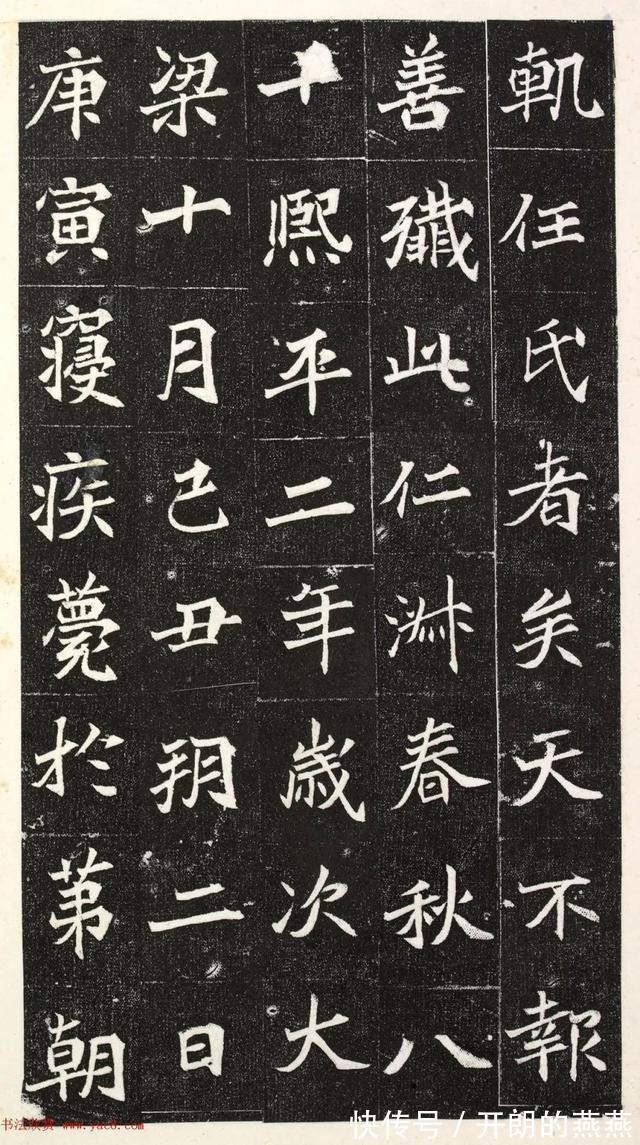 軌任氏者矣天不報
善殲此仁淋春秋八
十熙平二年歳次大
梁十月己丑朔二日
庚寅寢疾薨於第朝
书法欣赏 www.yac8.com
快传号/开朗的燕燕